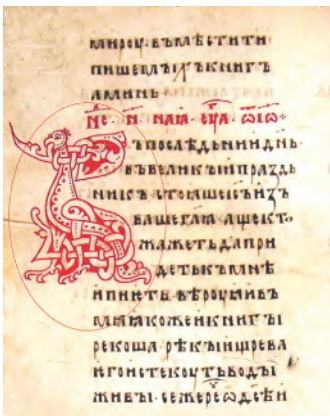 мироу·въмѣстити
пишемыꙗкънигъ
аминь
не·н·наꙗ·еѵ҃а·ѿіѡ·
ъпослѣдьниидн҃ь
въвеликыипраздь
никъстоꙗшеіс҃ъизъ
вашегл҃ѧащекто
жажетьдапри
детькъмънѣ
ипиѥть·вѣроуꙗивъ
мѧꙗкожекнигꙑ
рекошарѣкыищрева
ѥгоистекоутьводꙑ
живꙑ·сежерекоѡдс҃ѣи